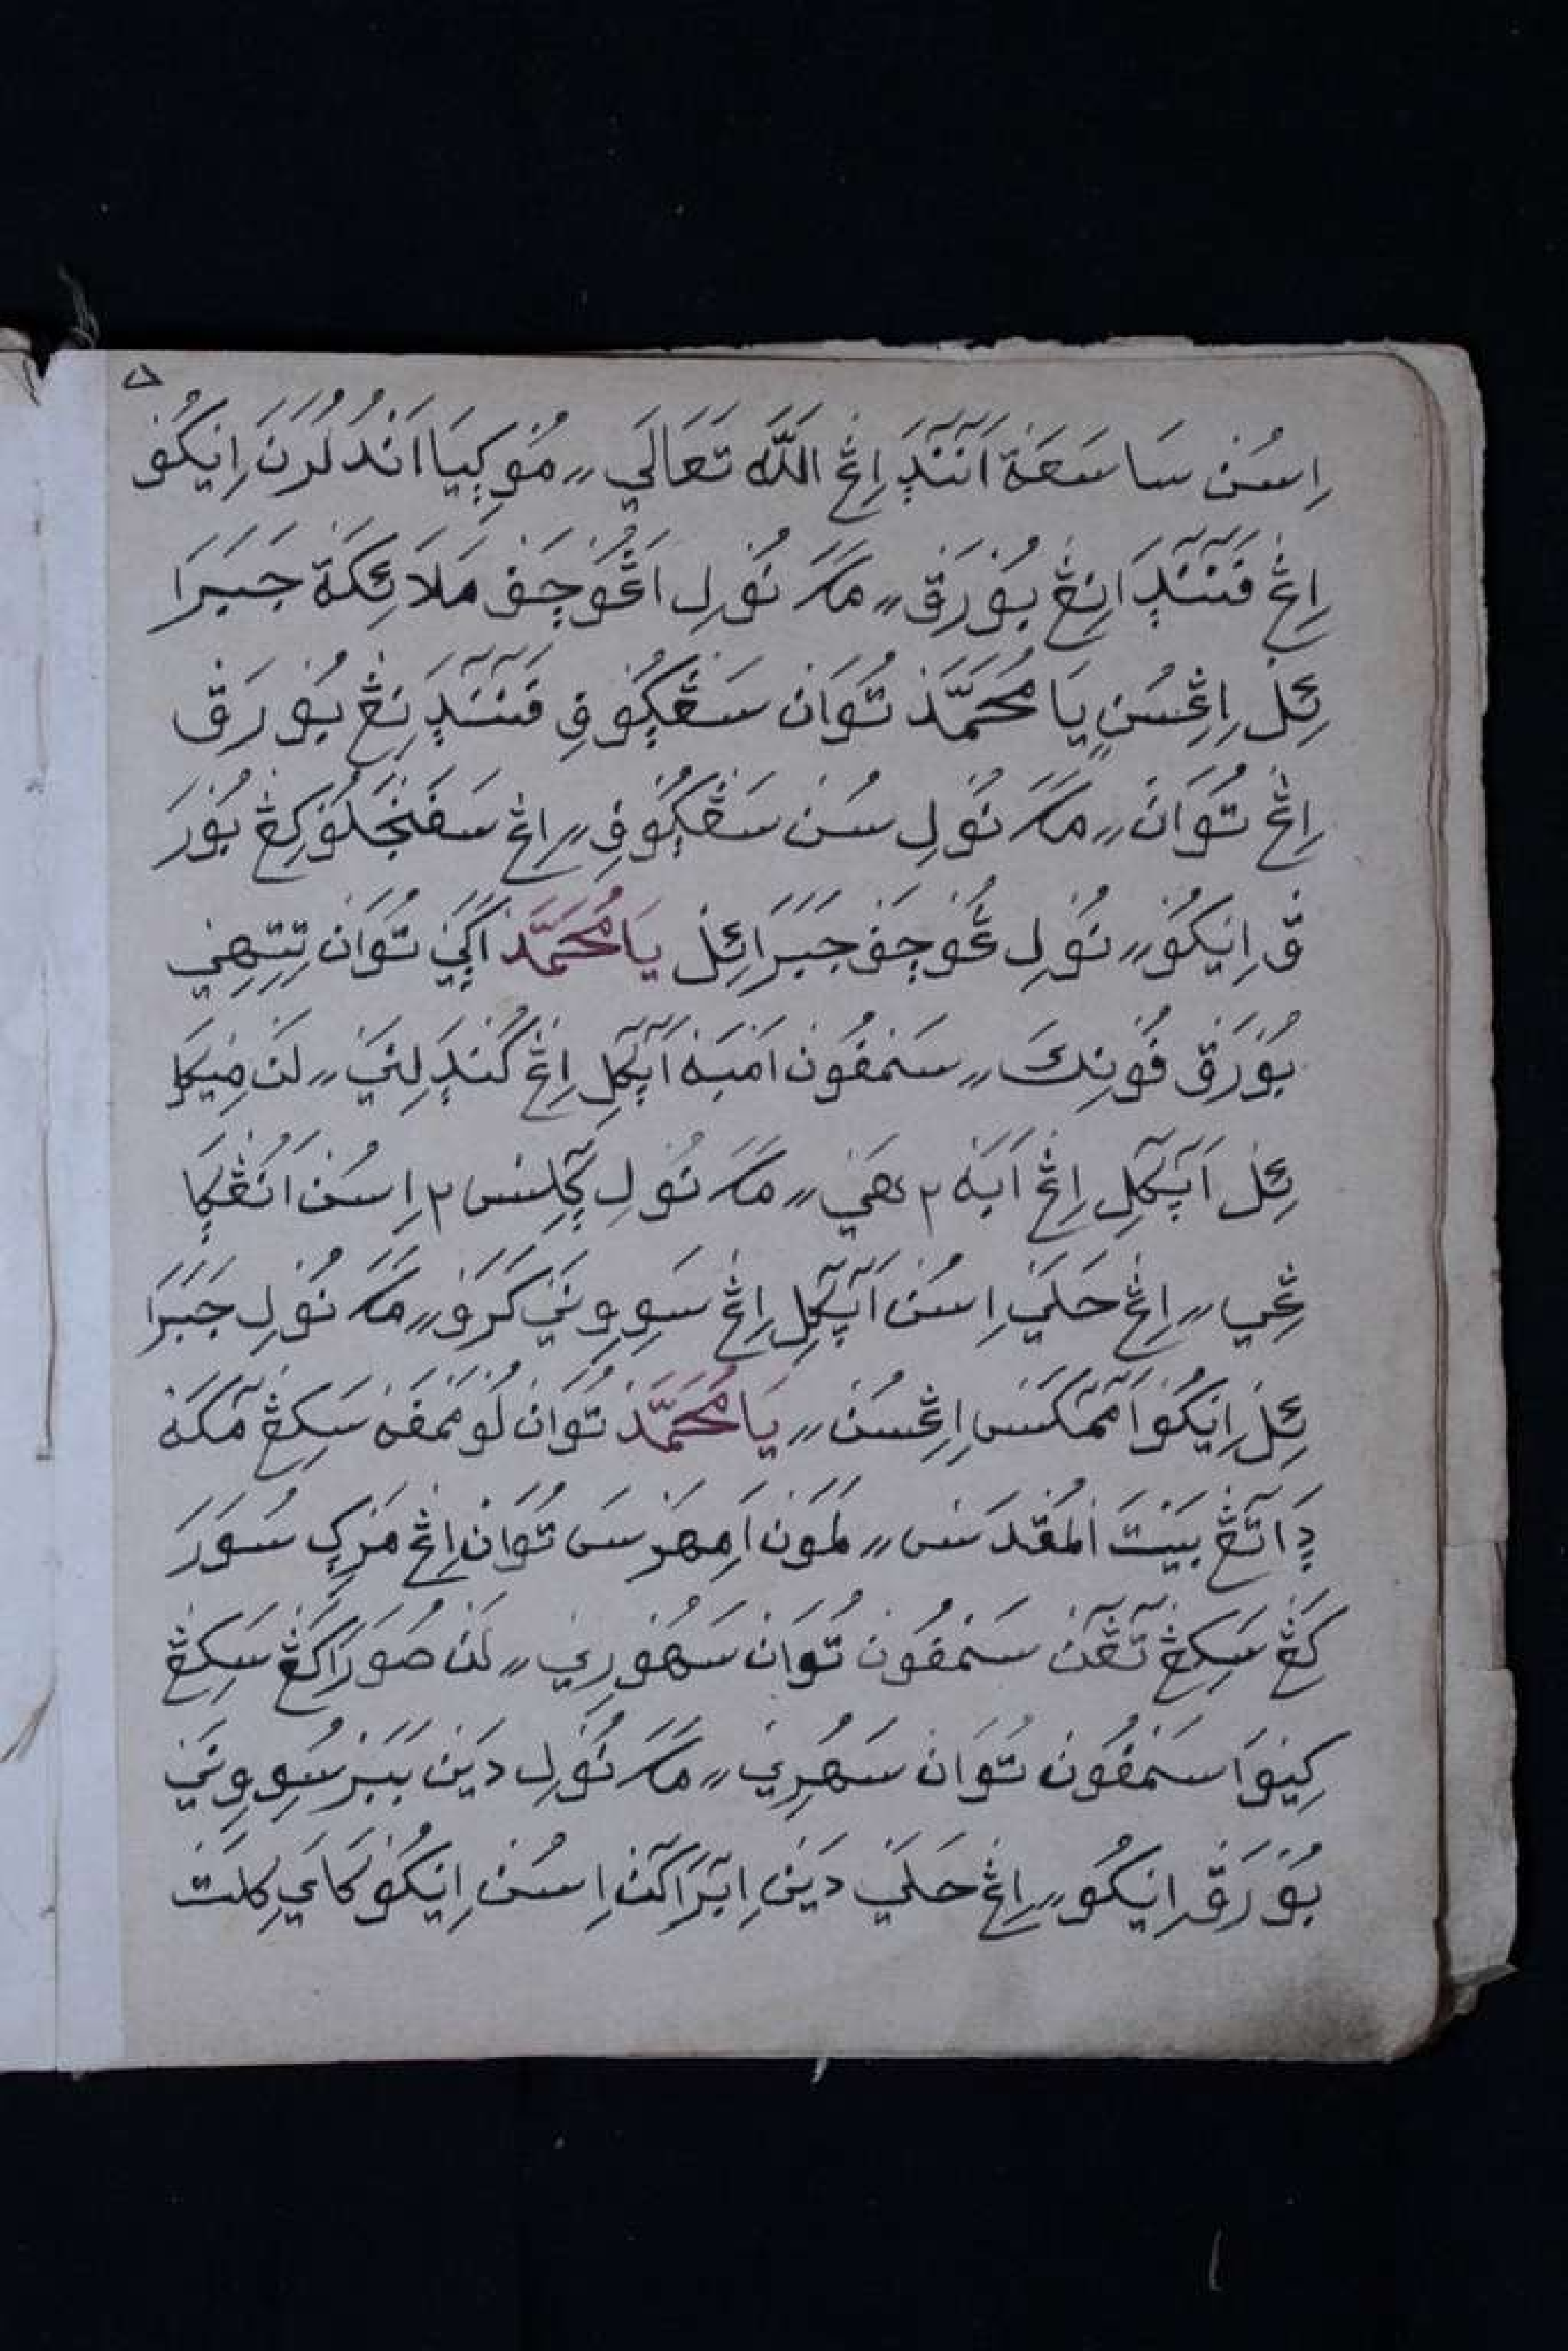 ٥
اِسُنْ سَاسَعَةْ اَنَنْدٜ اِڠْ اللّٰه تَعَالَي ٫٫ مُوْكِيَا اَنْدُلُرَنَ اِيْكُوْ
اِڠْ فَنَنْدَانِڠْ بُوْرَقْ ٫٫ مَكَ نُوْلِ اَڠُوْچَفْ مَلَائِكَةْ جَبَرَا
ئِلْ اِڠِسُنْ يَا مُحَمَّدْ تُوَانْ سَڠْكُوْفِ فَنَنْدَنِڠْ بُوْرَقْ
اِڠْ تُوَانْ ٫٫ مَكَ نُوْلِ سُنْ سَڠْكُوْفِ ٫٫ اِڠْ سَفَنْجَلُوْكِڠْ بُوْرَ
قْ اِيْكُوْ ٫٫ نُوْلِ ڠُوْچَفْ جَبَرَائِلْ يَا مُحَمَّدْ اَكَيْ تُوَانْ تِتِهِيْ
بُوْرَقْ فُوْنِكَ ٫٫ سَمْفُوْنْ اَمْبَهْ اَبْكَلِ اِڠْ كَنْدَلِنَيْ ٫٫ لَنْ مِيْكَا
ئِلْ اَبْكَلِ اِڠْ اَبَهْ٢ هَيْ ٫٫ مَكَ نُوْلِ كٜلِسْ٢ اِسُنْ اَنُڠْكَا
ڠِيْ ٫٫ اِڠْ حَلَيْ اِسُنْ اَبْكَلِ اِڠْ سَوِوِنَيْ كَرَوْ ٫٫ مَكَ نُوْلِ جَبَرَا
ئِلْ اِيْكُوْ اَمَكَسْ اِڠِسُنْ ٫٫ يَا مُحَمَّدْ تُوَانْ لُوْمَمْفَهْ سَكِڠْ مَكَةْ
دٜاتَڠْ بَيْتَ الْمُقَدَسْ ٫٫ لَمُوْنْ اَمِهَرْسَ تُوَانْ اِڠْ مَرْكِ سُوَرَ
كَڠْ سَكِڠْ تَڠَنْ سَمْفُوْنْ تُوَانْ سَهُوْرِيْ ٫٫ لَنْ صُوَرَا كَڠْ سَكِڠْ
كِيْوَا سَمْفُوْنْ تُوَانْ سَهُرِيْ ٫٫ مَكَ نُوْلِ دَيْنْ بَبَرْ سُوِوِنَيْ
بُوْرَقْ اِيْكُوْ ٫٫ اِڠْ حَلَيْ دَيْنْ اِبَرَاكَنْ اِسُنْ اِيْكُوْ كَايَ كِلَتْ